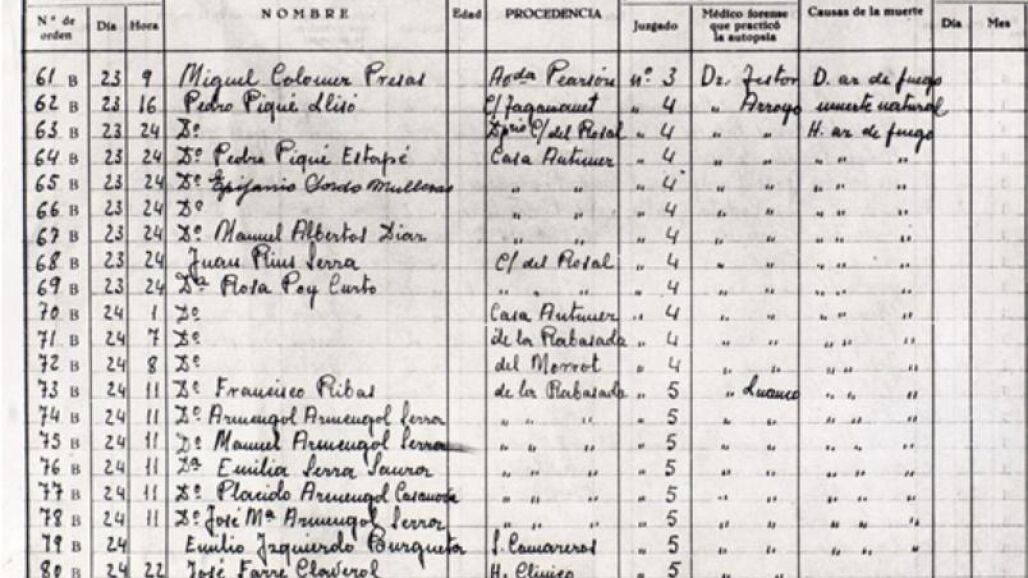 N.º de orden Día Hora NOMBRE Edad PROCEDENCIA Juzgado Médico forense que practicó la autopsia Causas de la muerte Día Mes
61 B 23 9 Miguel Colomer Presas Avda Pearsón nº 3 Dr. D. ar de fuego
62 B 23 16 Pedro Piqué Llisó C/ " 4 " Arroyo muerte natural
63 B 23 24 Dº C/ del Rosal " 4 " " H. ar de fuego
64 B 23 24 Dº Pedro Piqué Estapé Casa Antúnez " 4 " " " " "
65 B 23 24 Dº Epifanio " " " 4 " " " " "
66 B 23 24 Dº " " " 4 " " " " "
67 B 23 24 Dº Manuel Albertos Diar " " " 4 " " " " "
68 B 23 24 Juan Rius Serra C/ del Rosal " 4 " " " " "
69 B 23 24 Dª Rosa Poy Curto " " " " 4 " " " " "
70 B 24 1 Dº Casa Antúnez " 4 " " " " "
71 B 24 7 Dº de la Rabasada " 4 " " " " "
72 B 24 8 Dº del Morrot " 4 " " " " "
73 B 24 11 Dº Francisco Ribas de la Rabasada " 5 " Luanco " " "
74 B 24 11 Dº Armengol Armengol Serra " " " " 5 " " " " "
75 B 24 11 Dº Manuel Armengol Serra " " " " 5 " " " " "
76 B 24 11 Dª Emilia Serra " " " " 5 " " " " "
77 B 24 11 Dº Placido Armengol Casanova " " " " 5 " " " " "
78 B 24 11 Dº José Mª Armengol Serra " " " " 5 " " " " "
79 B 24 Emilio Izquierdo Burgueta S. Camareros " 5 " " " " "
80 B 24 22 José Farré Claverol H. Clínico " 5 " " " " "